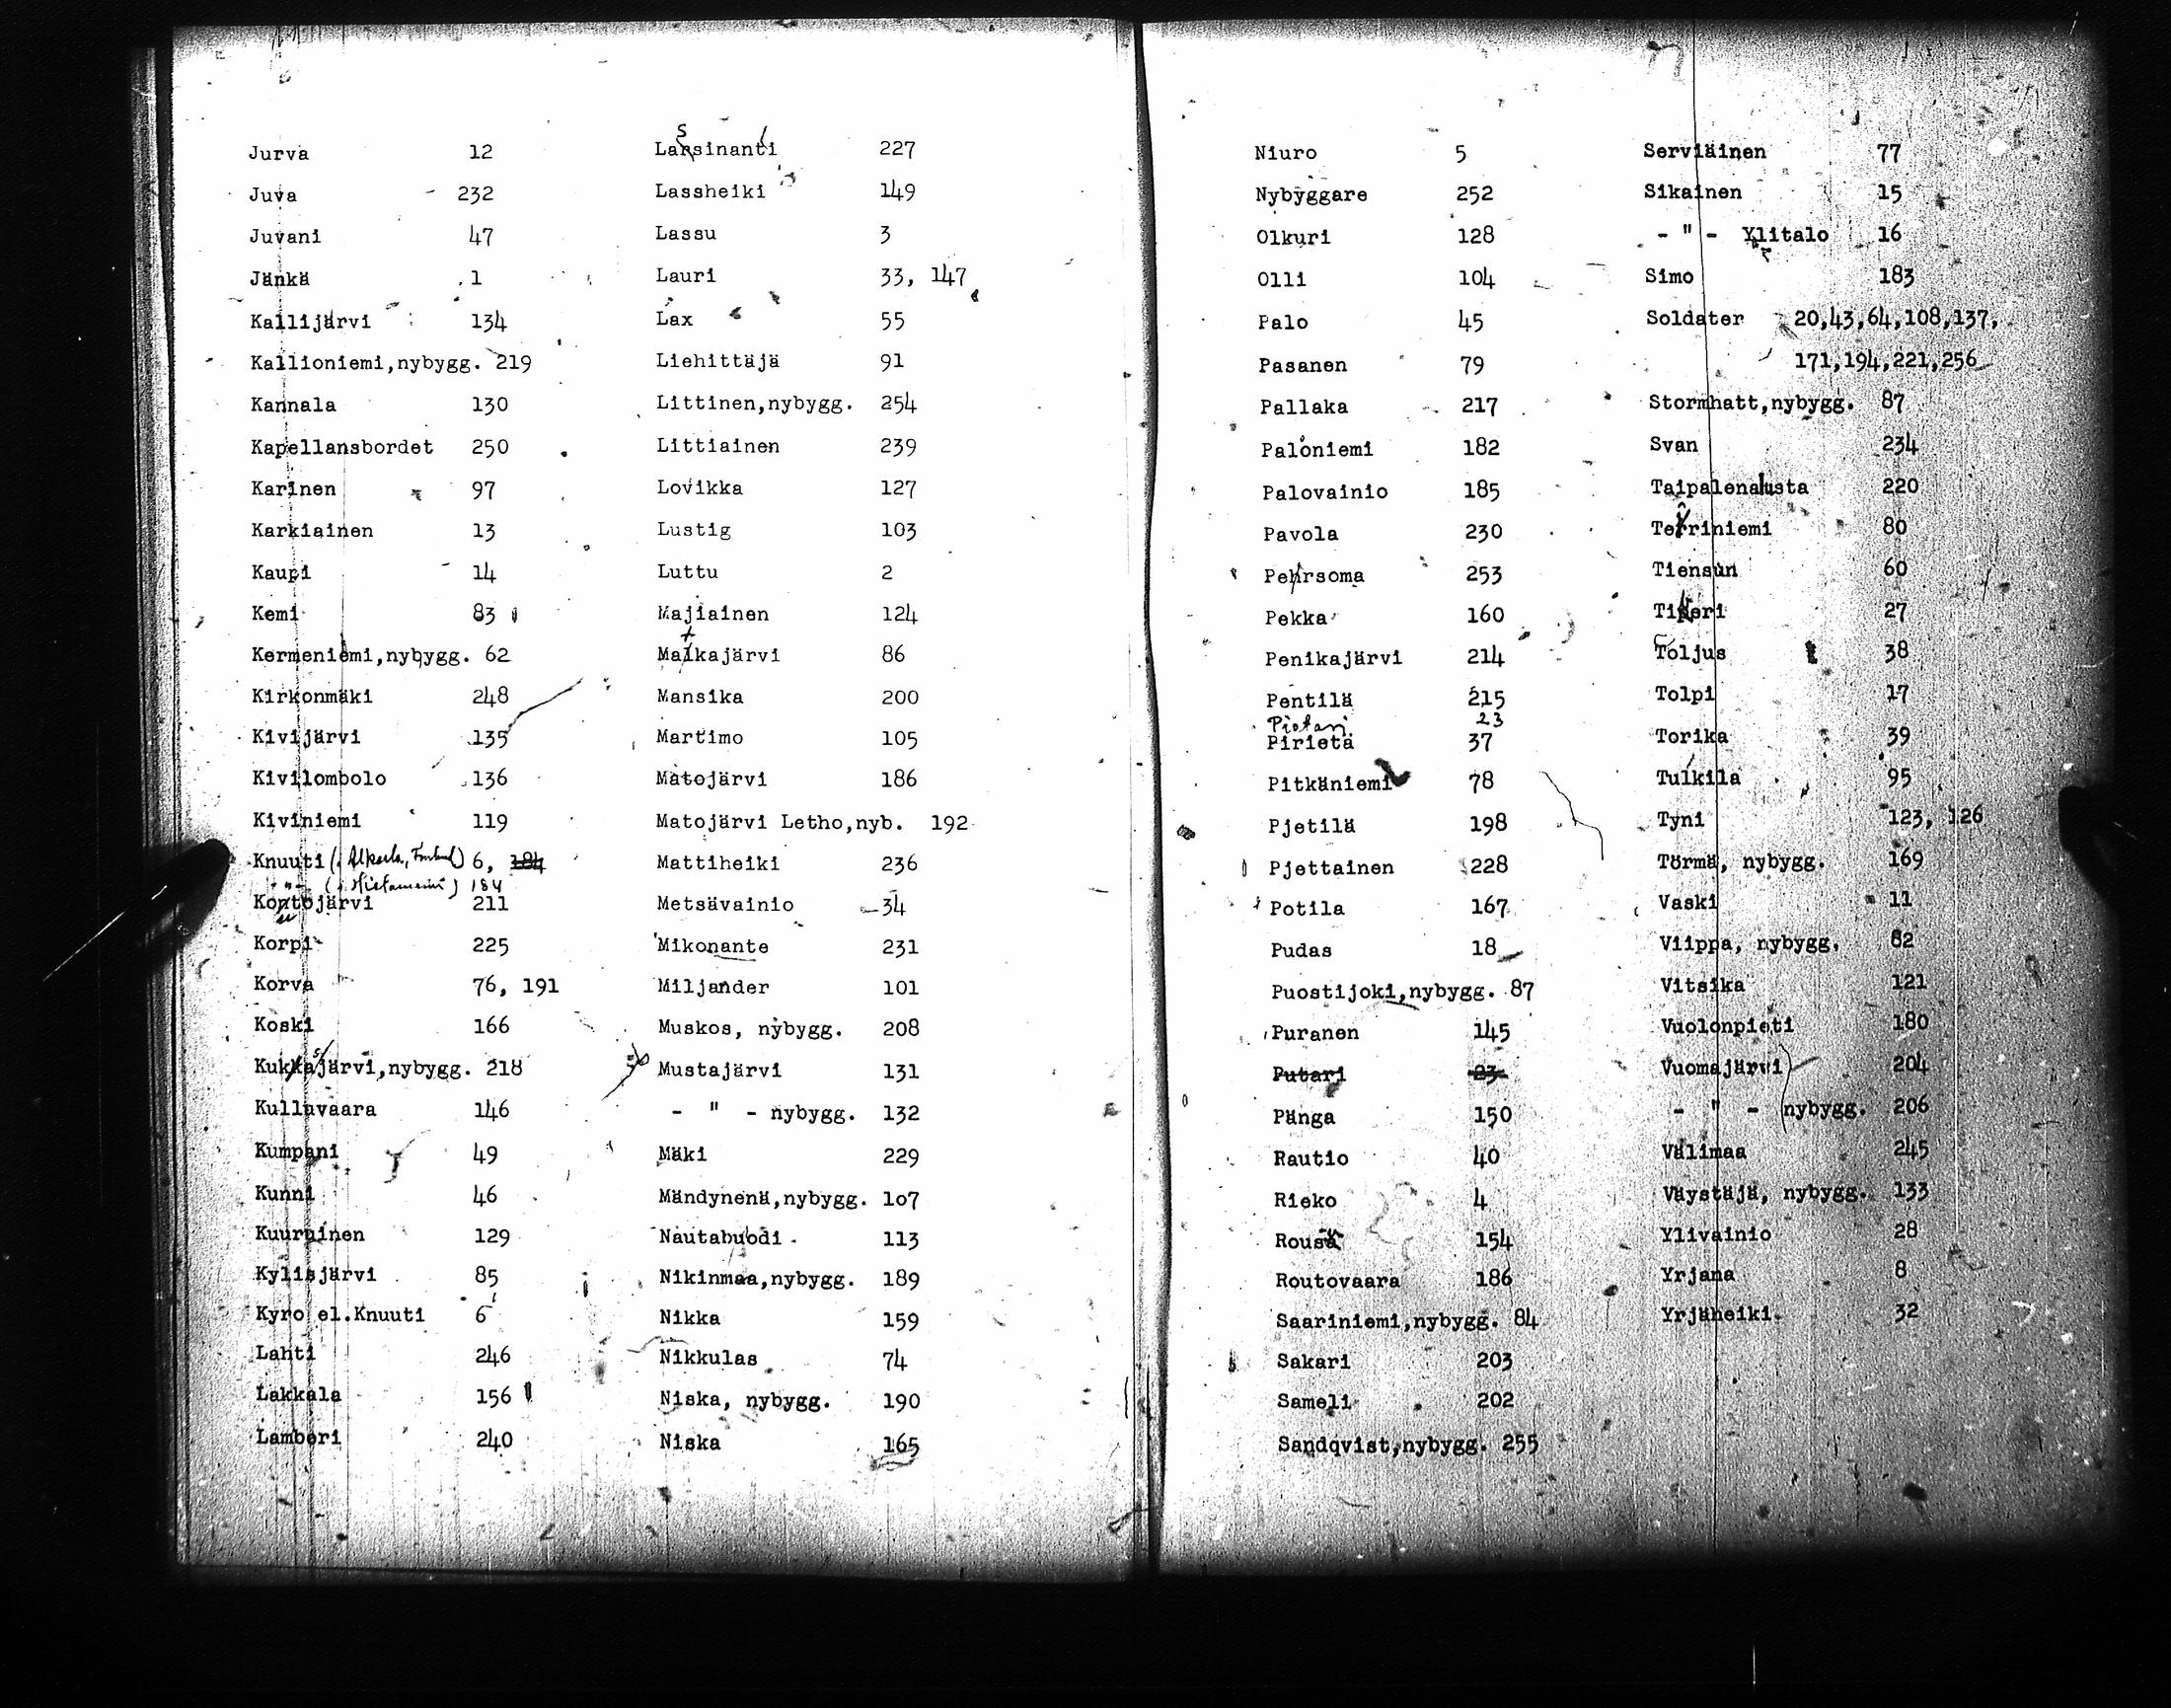 Jurva 12
Juva 232
Juvani 47
Jänkä 1
Kallijärvi 134
Kallioniemi,nybygg. 219
Kannala 130
Kapellansbordet 250
Karinen 97
Karkiainen 13
Kaupi 14
Kemi 83
Kermeniemi,nybygg. 62
Kirkonmäki 248
Kivijärvi 135
Kivilombolo 136
Kiviniemi 119
Knuuti 6, 184
- " - 184
Kontojärvi 211
Korpi 225
Korva 76, 191
Koski 166
Kukkasjärvi,nybygg. 218
Kullavaara 146
Kumpani 49
Kunni 46
Kuurainen 129
Kylisjärvi 85
Kyro el.Knuuti 6
Lahti 246
Lakkala 156
Lamberi 240
Larsinanti 227
Lassheiki 149
Lassu 3
Lauri 33, 147
Lax 55
Liehittäjä 91
Littinen,nybygg. 254
Littiainen 239
Lovikka 127
Lustig 103
Luttu 2
Majiainen 124
Matkajärvi 86
Mansika 200
Martimo 105
Matojärvi 186
Matojärvi Letho,nyb. 192
Mattiheiki 236
Metsävainio 34
Mikonante 231
Miljander 101
Muskos, nybygg. 208
Mustajärvi 131
- " - nybygg. 132
Mäki 229
Mändynenä,nybygg. 107
Nautabuodi 113
Nikinmaa,nybygg. 189
Nikka 159
Nikkulas 74
Niska, nybygg. 190
Niska 165
Niuro 5
Nybyggare 252
Olkuri 128
Olli 104
Palo 45
Pasanen 79
Pallaka 217
Paloniemi 182
Palovainio 185
Pavola 230
Pehrsoma 253
Pekka 160
Penikajärvi 214
Pentilä 215
Pietari 23
Pirietä 37
Pitkäniemi 78
Pjetilä 198
Pjettainen 228
Potila 167
Pudas 18
Puostijoki,nybygg. 87
Puranen 145
Putari 23
Pänga 150
Rautio 40
Rieko 4
Rousa 154
Routovaara 186
Saariniemi,nybygg. 84
Sakari 203
Sameli 202
Sandqvist,nybygg. 255
Serviäinen 77
Sikainen 15
- " - Ylitalo 16
Simo 183
Soldater 20,43,64,108,137,
171,194,221,256
Stormhatt,nybygg. 87
Svan 234
Taipalenalusta 220
Terriniemi 80
Tiensun 60
Tikeri 27
Toljus 38
Tolpi 17
Torika 39
Tulkila 95
Tyni 123, 126
Törmä, nybygg. 169
Vaski 11
Viippa, nybygg. 82
Vitsika 121
Vuolonpieti 180
Vuomajärvi 204
- " - nybygg. 206
Välimaa 245
Väystäjä, nybygg. 133
Ylivainio 28
Yrjana 8
Yrjäheiki 32